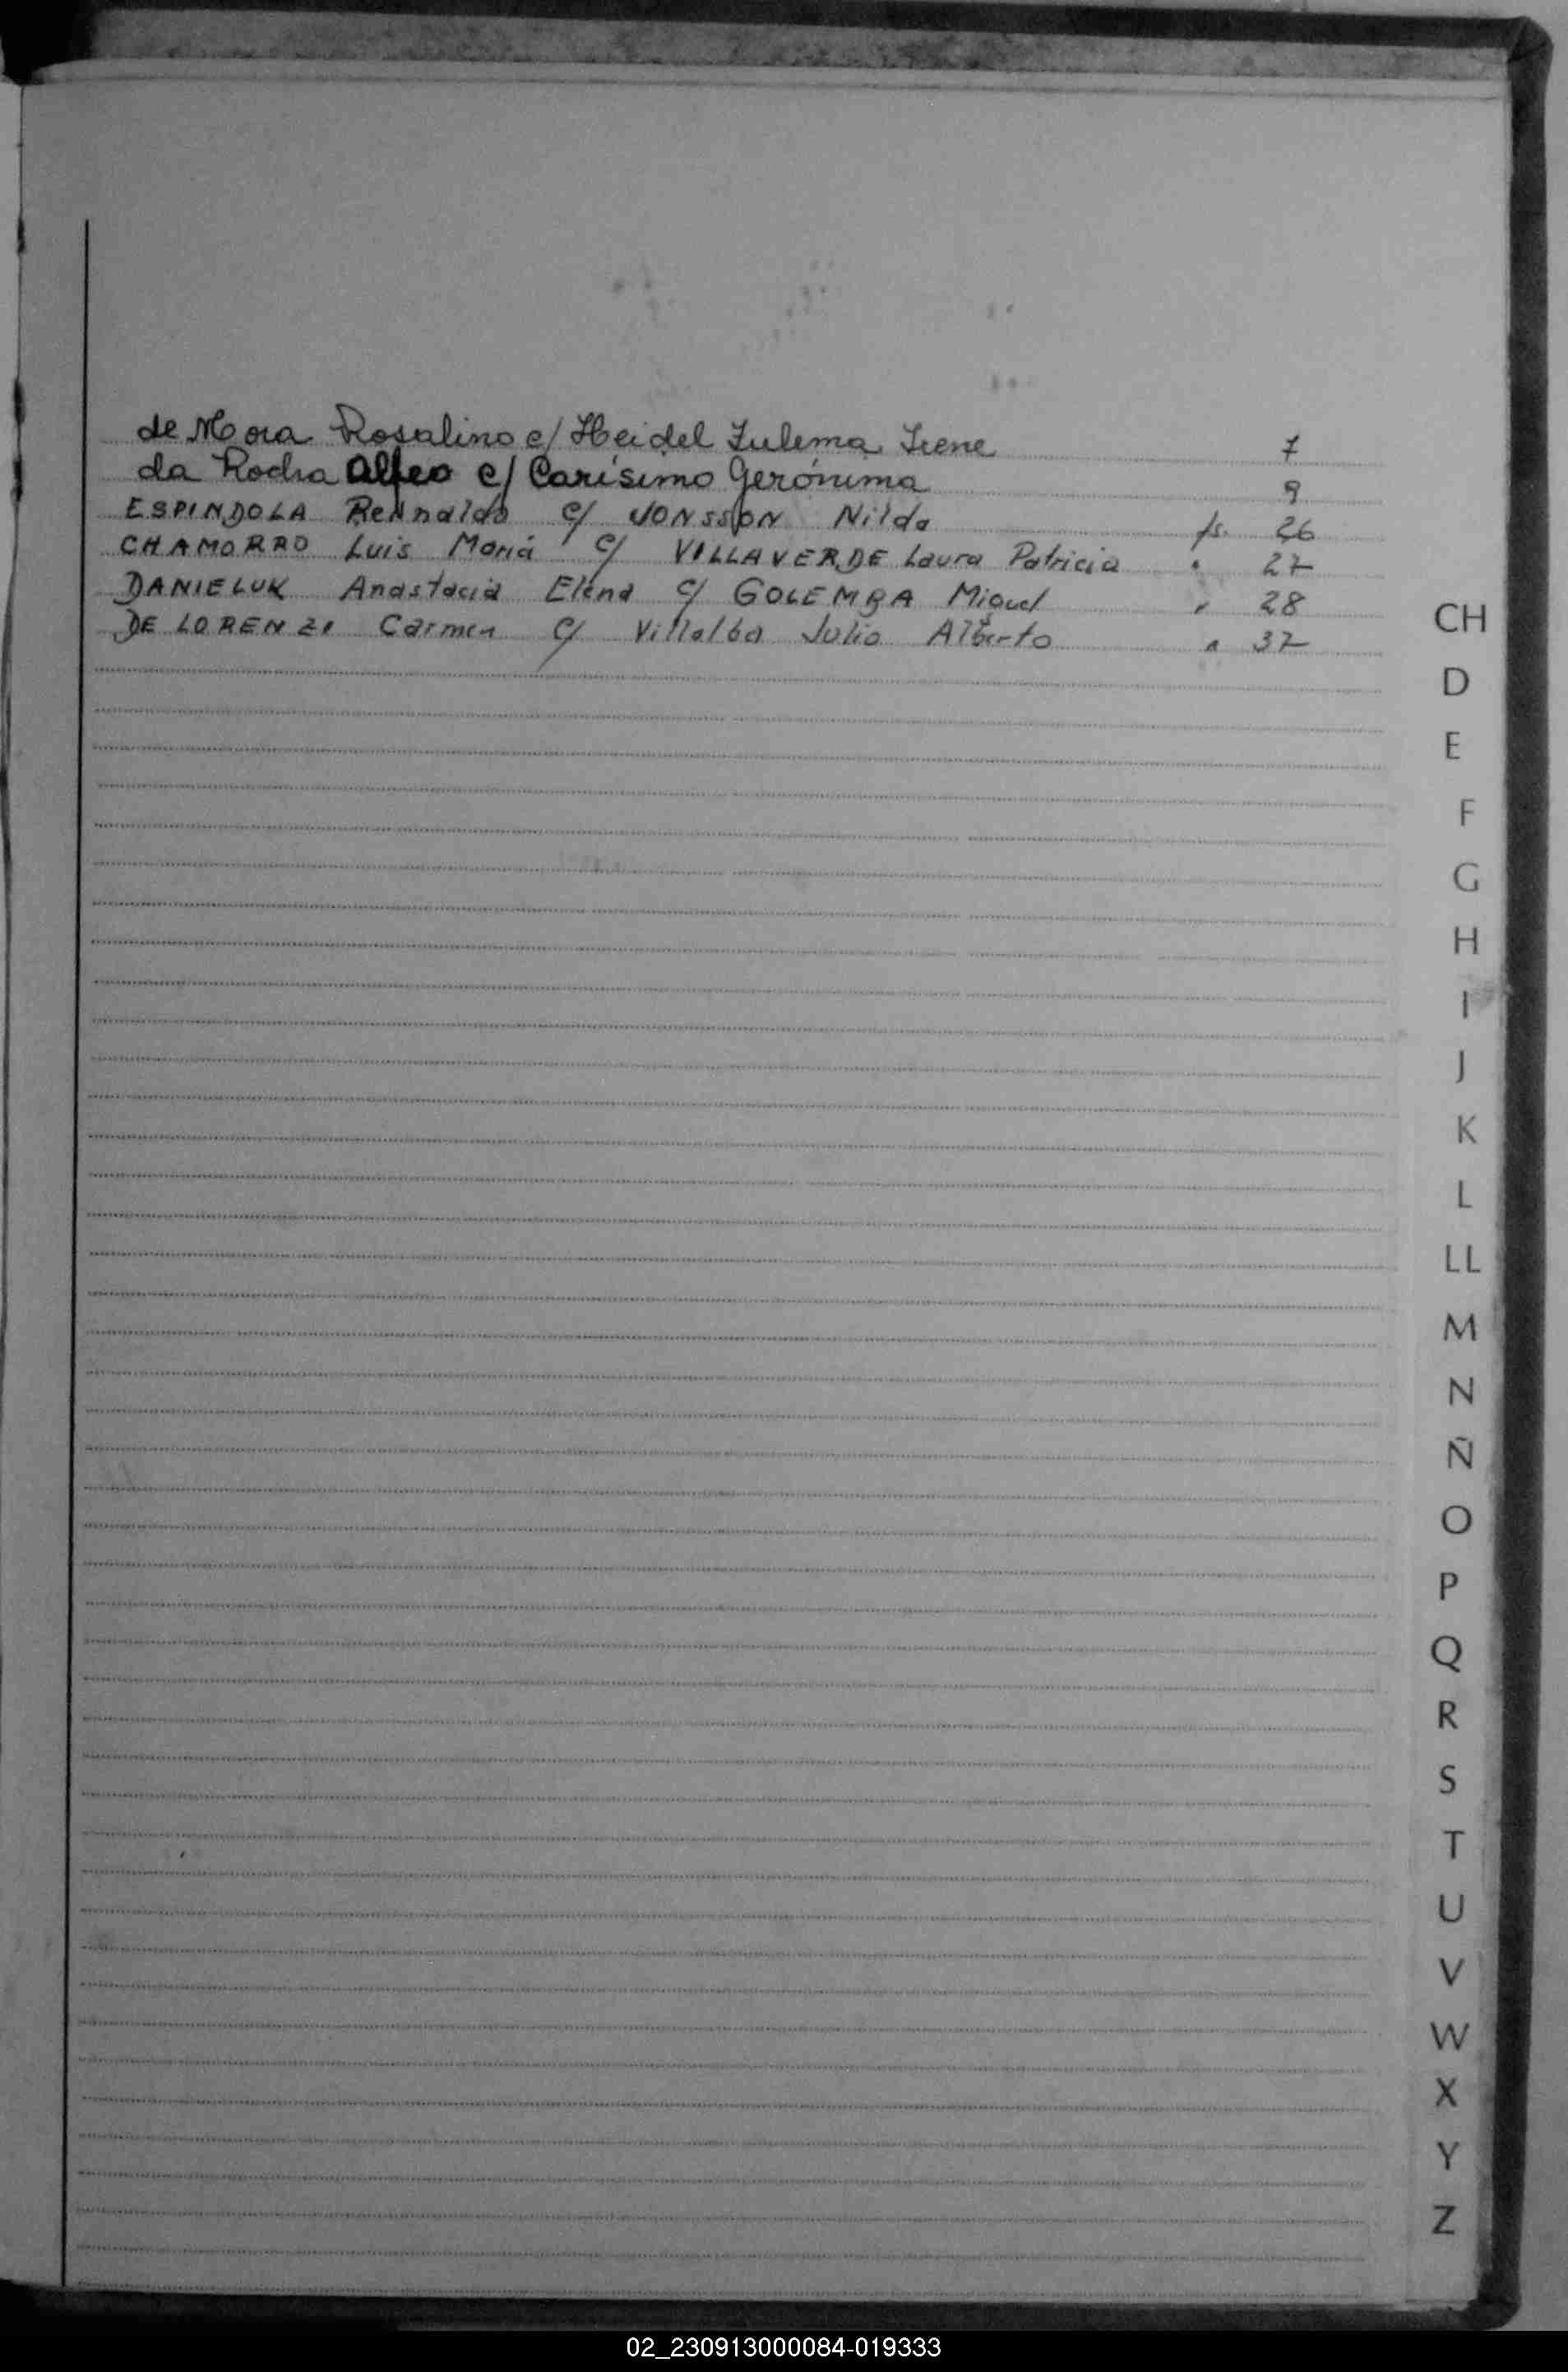 de Mora Rosalino c/ Heidel Zulema Irene 7
da Rocha Alfeo c/ Carísimo Gerónima 9
ESPINDOLA Reinaldo c/ JONSSON Nilda fs. 26
CHAMORRO Luis María c/ VILLAVERDE Laura Patricia " 27
DANIELUK Anastacia Elena c/ GOLEMBA Miguel " 28
DE LORENZI Carmen c/ Villalba Julio Alberto " 37
CH
D
E
F
G
H
I
J
K
L
LL
M
N
Ñ
O
P
Q
R
S
T
U
V
W
X
Y
Z
02_230913000084-019333